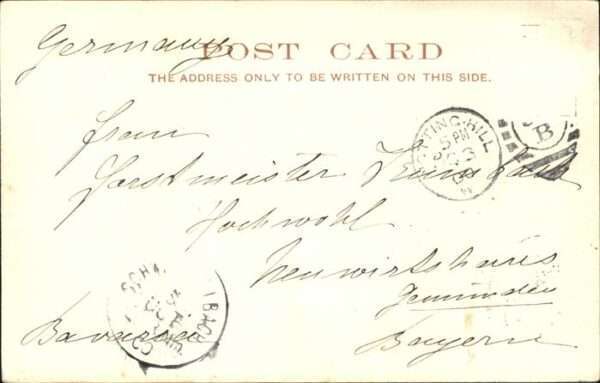 Germany
POST CARD
THE ADDRESS ONLY TO BE WRITTEN ON THIS SIDE.
Frau
Forstmeister
Hochwohl
Neuwirtshaus
Gemünden
Bavaria
Bayern
NOTTING-HILL
5 PM
B